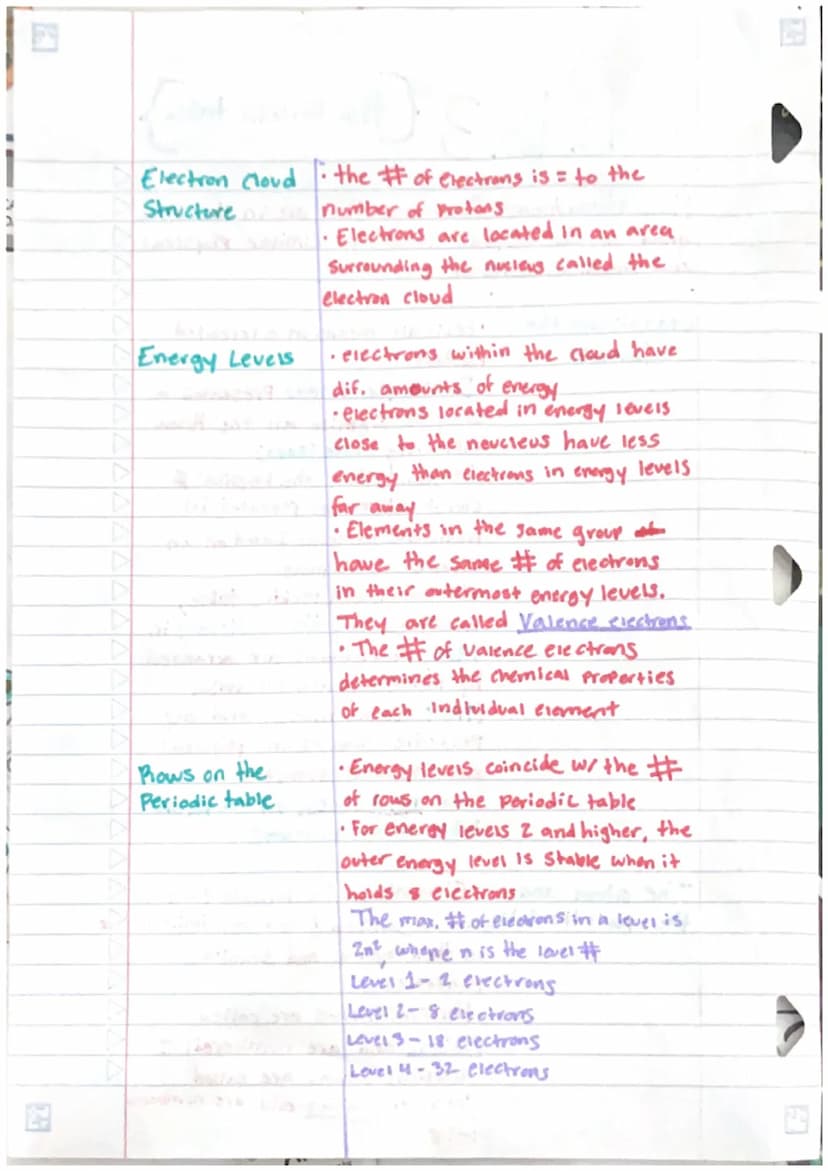 Electron Cloud
Structure
· the # of electrons is = to the
number of protons
· Electrons are located in an area
surrounding the nucleus called the
electron cloud
Energy Levels
· electrons within the cloud have
dif. amounts of energy
· electrons located in energy levels
close to the neucleus have less
energy than electrons in energy levels
far away
· Elements in the same group
have the same # of electrons
in their outermost energy levels.
They are called Valence electrons
· The # of valence electrons
determines the chemical properties
of each individual element
Rows on the
Periodic table
· Energy levels coincide w/ the #
of rows on the periodic table
· For energy levels 2 and higher, the
outer energy level is stable when it
holds 8 electrons
The max. # of electrons in a level is
2n², where n is the level #
Level 1- 2 electrons
Level 2- 8 electrons
Level 3 - 18 electrons
Level 4 - 32 electrons